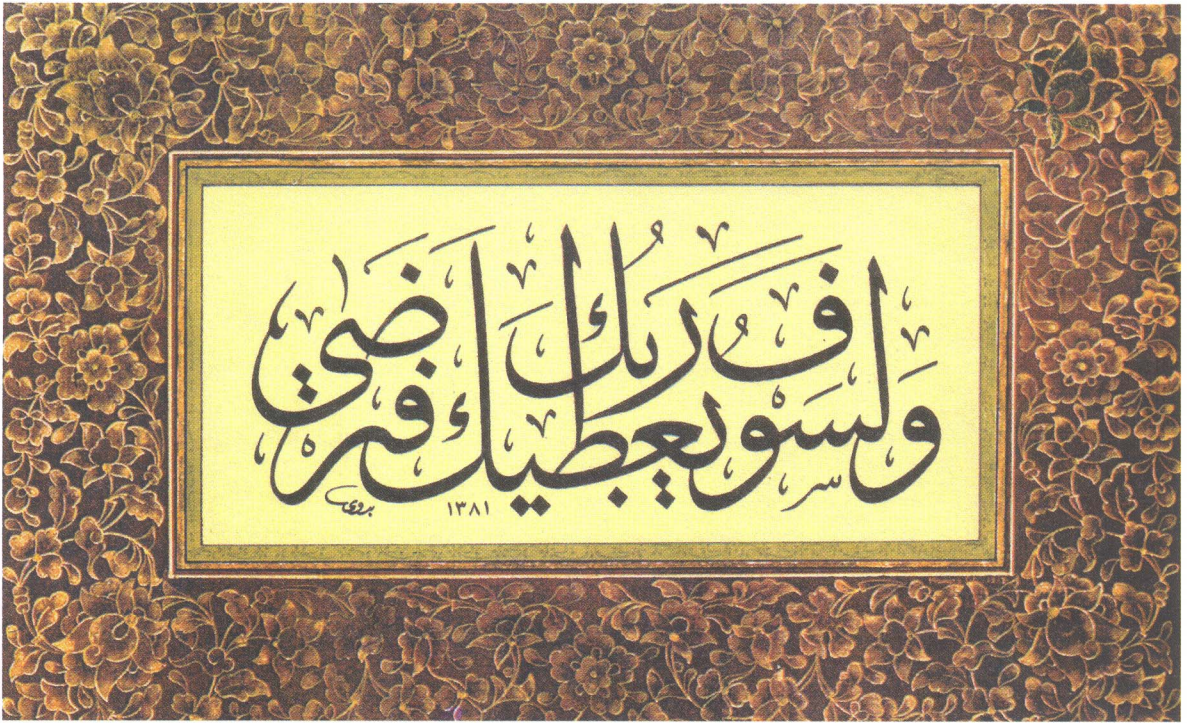 وَلَسَوْفَ يُعْطِيكَ رَبُّكَ فَتَرْضَىٰ
بدوي ١٣٨١